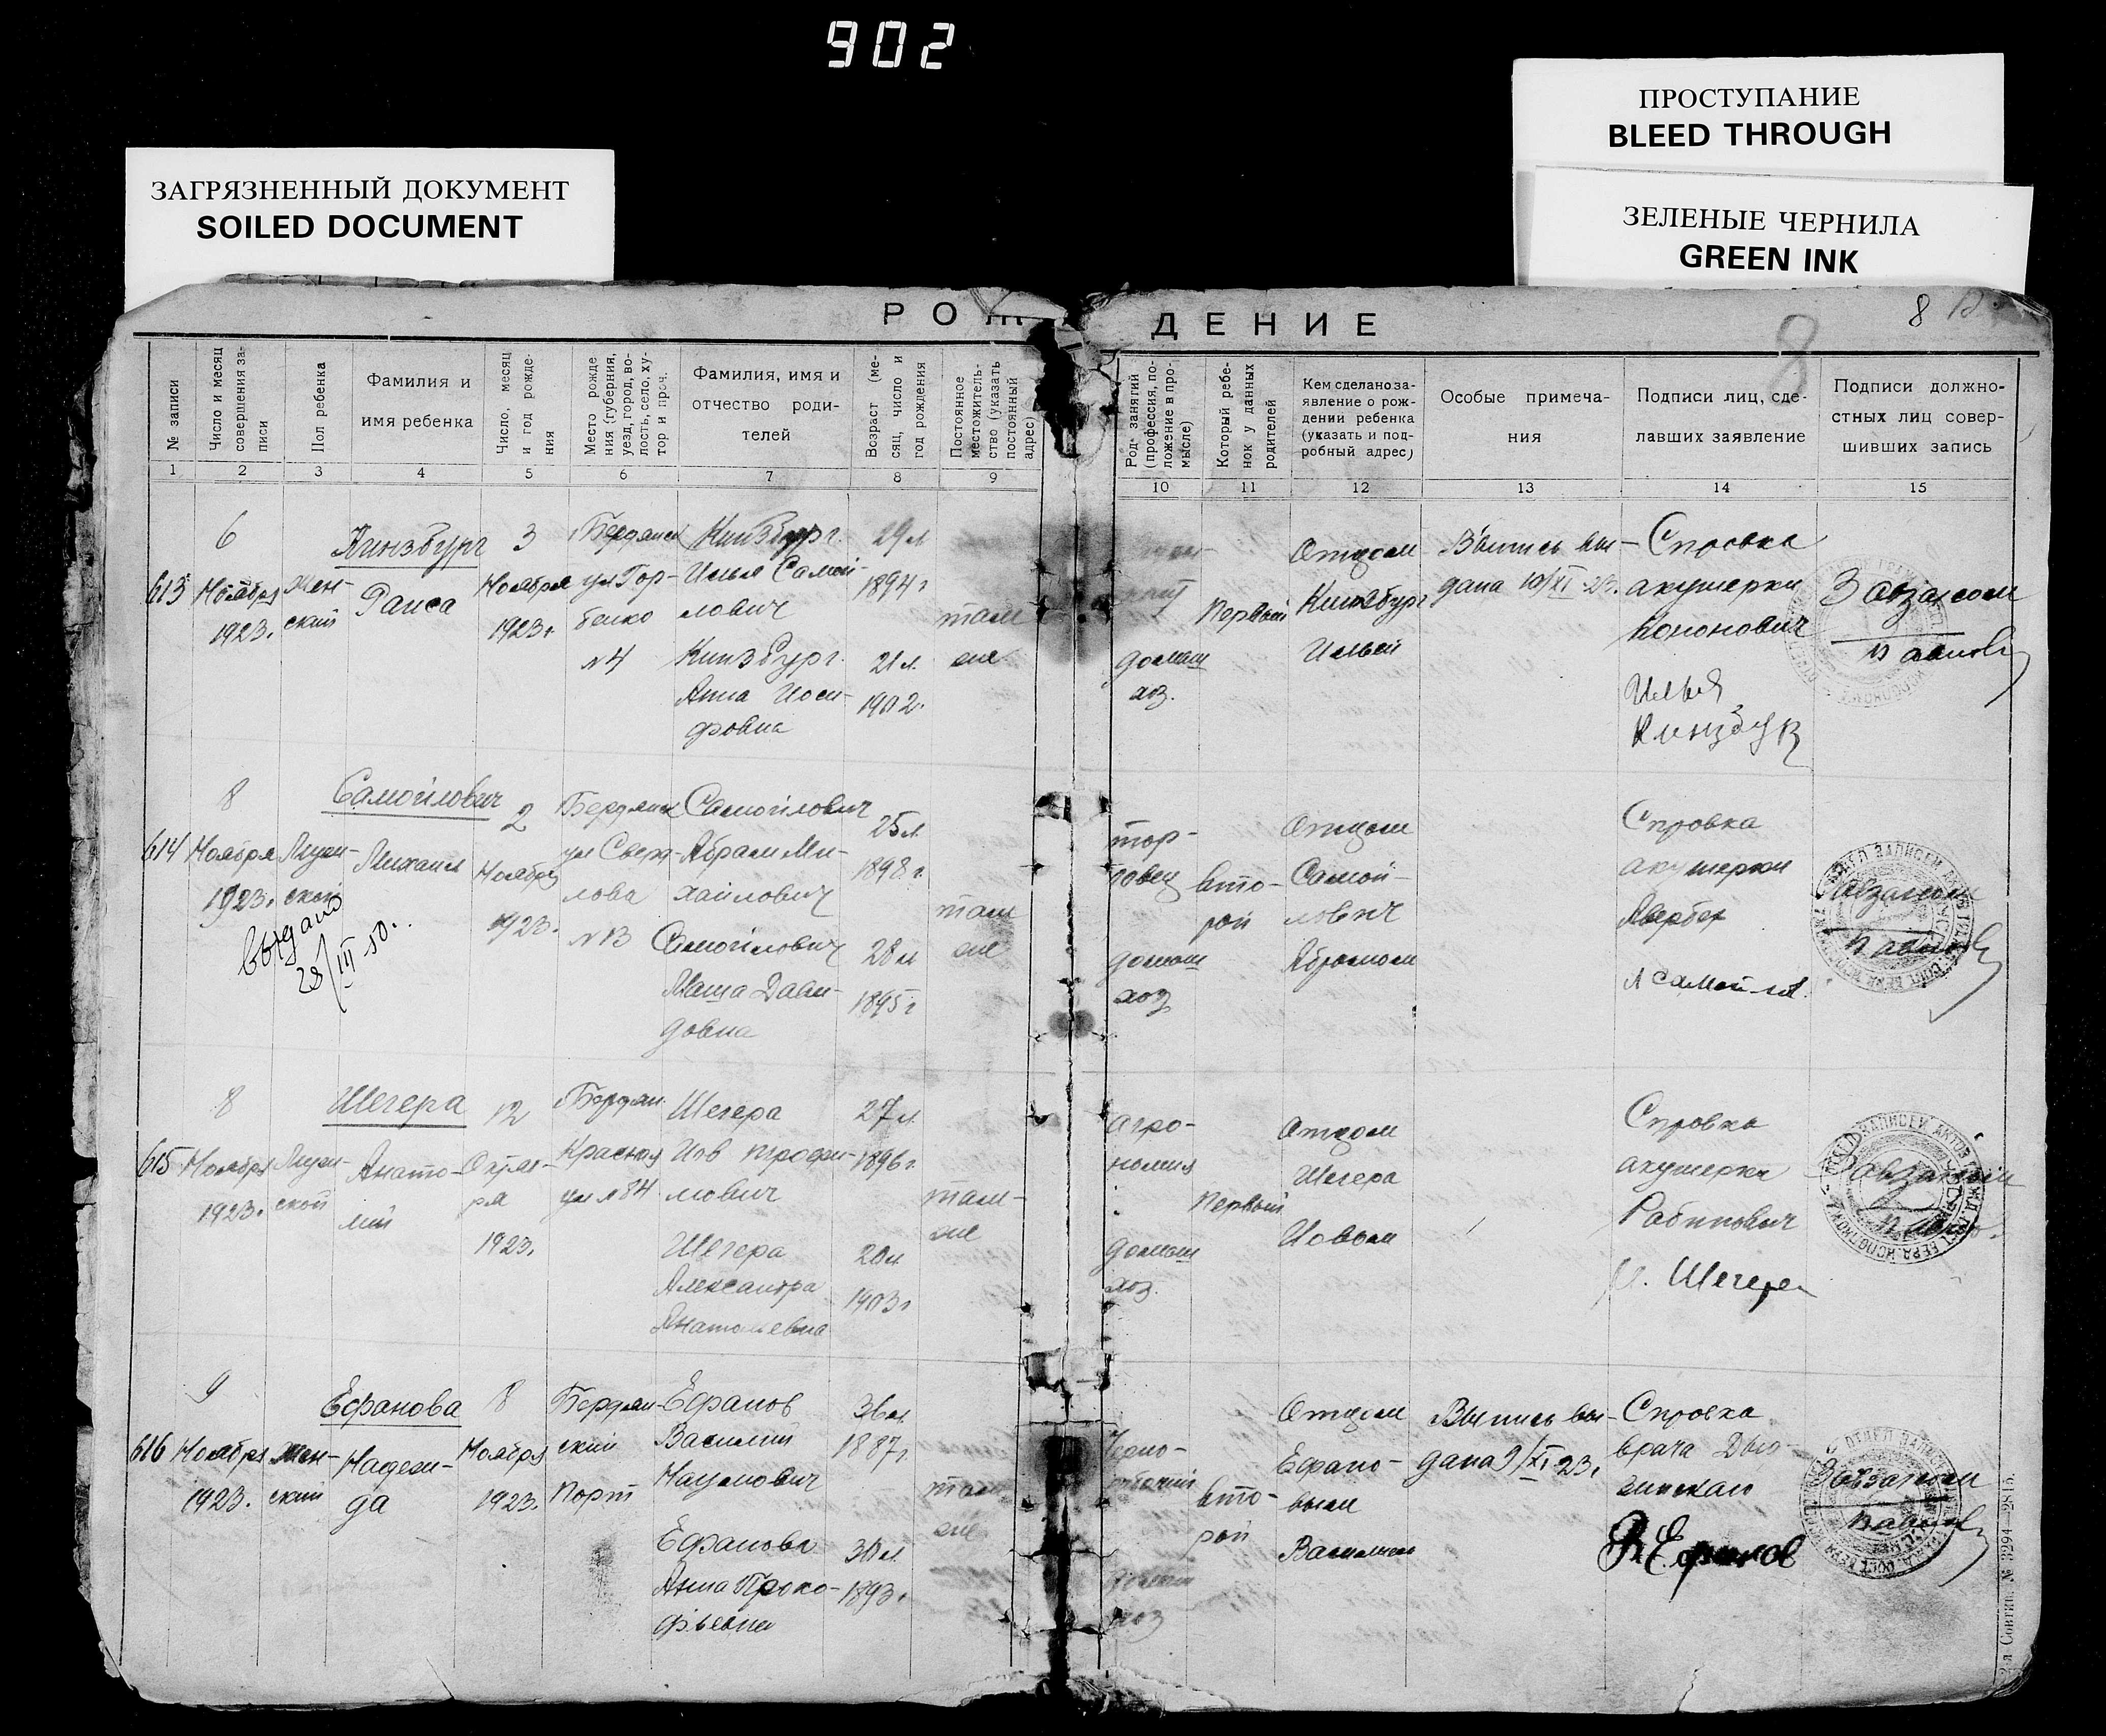 902
ПРОСТУПАНИЕ
BLEED THROUGH
ЗАГРЯЗНЕННЫЙ ДОКУМЕНТ
SOILED DOCUMENT
ЗЕЛЕНЫЕ ЧЕРНИЛА
GREEN INK
РОЖ ДЕНИЕ
8
8
№ записи
Число и месяц
совершения за-
писи
Пол ребенка
Фамилия и
имя ребенка
Число, месяц
и год рожде-
ния
Место рожде
ния (губерния,
уезд, город, во-
лость, село, ху-
тор и проч.
Фамилия, имя и
отчество роди-
телей
Возраст (ме-
сяц, число и
год рождения
Постоянное
местожитель-
ство (указать
постоянный
адрес)
Род занятий
(профессия, по-
ложение в про-
мысле)
Который ребе-
нок у данных
родителей
Кем сделано за-
явление о рож-
дении ребенка
(указать и под-
робный адрес)
Особые примеча-
ния
Подписи лиц, сде-
лавших заявление
Подписи должно-
стных лиц совер-
шивших запись
1 2 3 4 5 6 7 8 9 10 11 12 13 14 15
613
6
Ноября
1923.
Жен-
ский
Кинзбург
Раиса
3
Ноября
1923г
Бердянск
ул Гор-
бенко
№4
Кинзбург.
Илья Самой-
лович
Кинзбург.
Анна Иоси-
фовна
29 л
1894 г
21 л.
1902.
там
же
домаш
хоз.
Первый
Отцом
Кинзбург
Ильей
Выпись вы-
дана 10/XI-23.
Справка
акушерки
Кононович
Илья
Завзагсом
614
8
Ноября
1923.
Мужи-
ский
выдано
28/III-50.
Самойлович
Михаил
2
Ноября
1923.
Бердянск
ул Сверд-
лова
№13
Самойлович
Абрам Ми-
хайлович
Самойлович
Маша Дави-
довна
25 л
1898 г.
28 л
1895 г
там
же
тор-
говец
домаш
хоз
вто-
рой
Отцом
Самой-
лович
Абрамом
Справка
акушерки
Авербах
Завзагсом
615
8
Ноября
1923.
Мужи-
ской
Шегера
Анато-
лий
12
Октяб-
ря
1923.
Бердян.
Красная
ул №84
Шегера
Иов Трофи-
мович
Шегера
Александра
Анатольевна
27 л
1896 г.
20 л
1903 г
там-
же
агро-
номия
домаш
хоз.
Первый
Отцом
Шегера
Иовом
Справка
акушерка
Рабинович
И. Шегера
Завзагсом
616
9
Ноября
1923.
Жен-
ский
Ефанова
Надеж-
да
8
Ноября
1923.
Бердян-
ский
Порт
Ефанов
Василий
Наумович
Ефанова
Анна Проко-
фьевна
36 л
1887 г.
30 л.
1893 г
там
же
Черно-
рабочий
домаш
хоз
вто-
рой
Отцом
Ефано-
вым
Василием
Выпись вы-
дана 9/XI-23г
Справка
врача
В Ефанов
Завзагсом